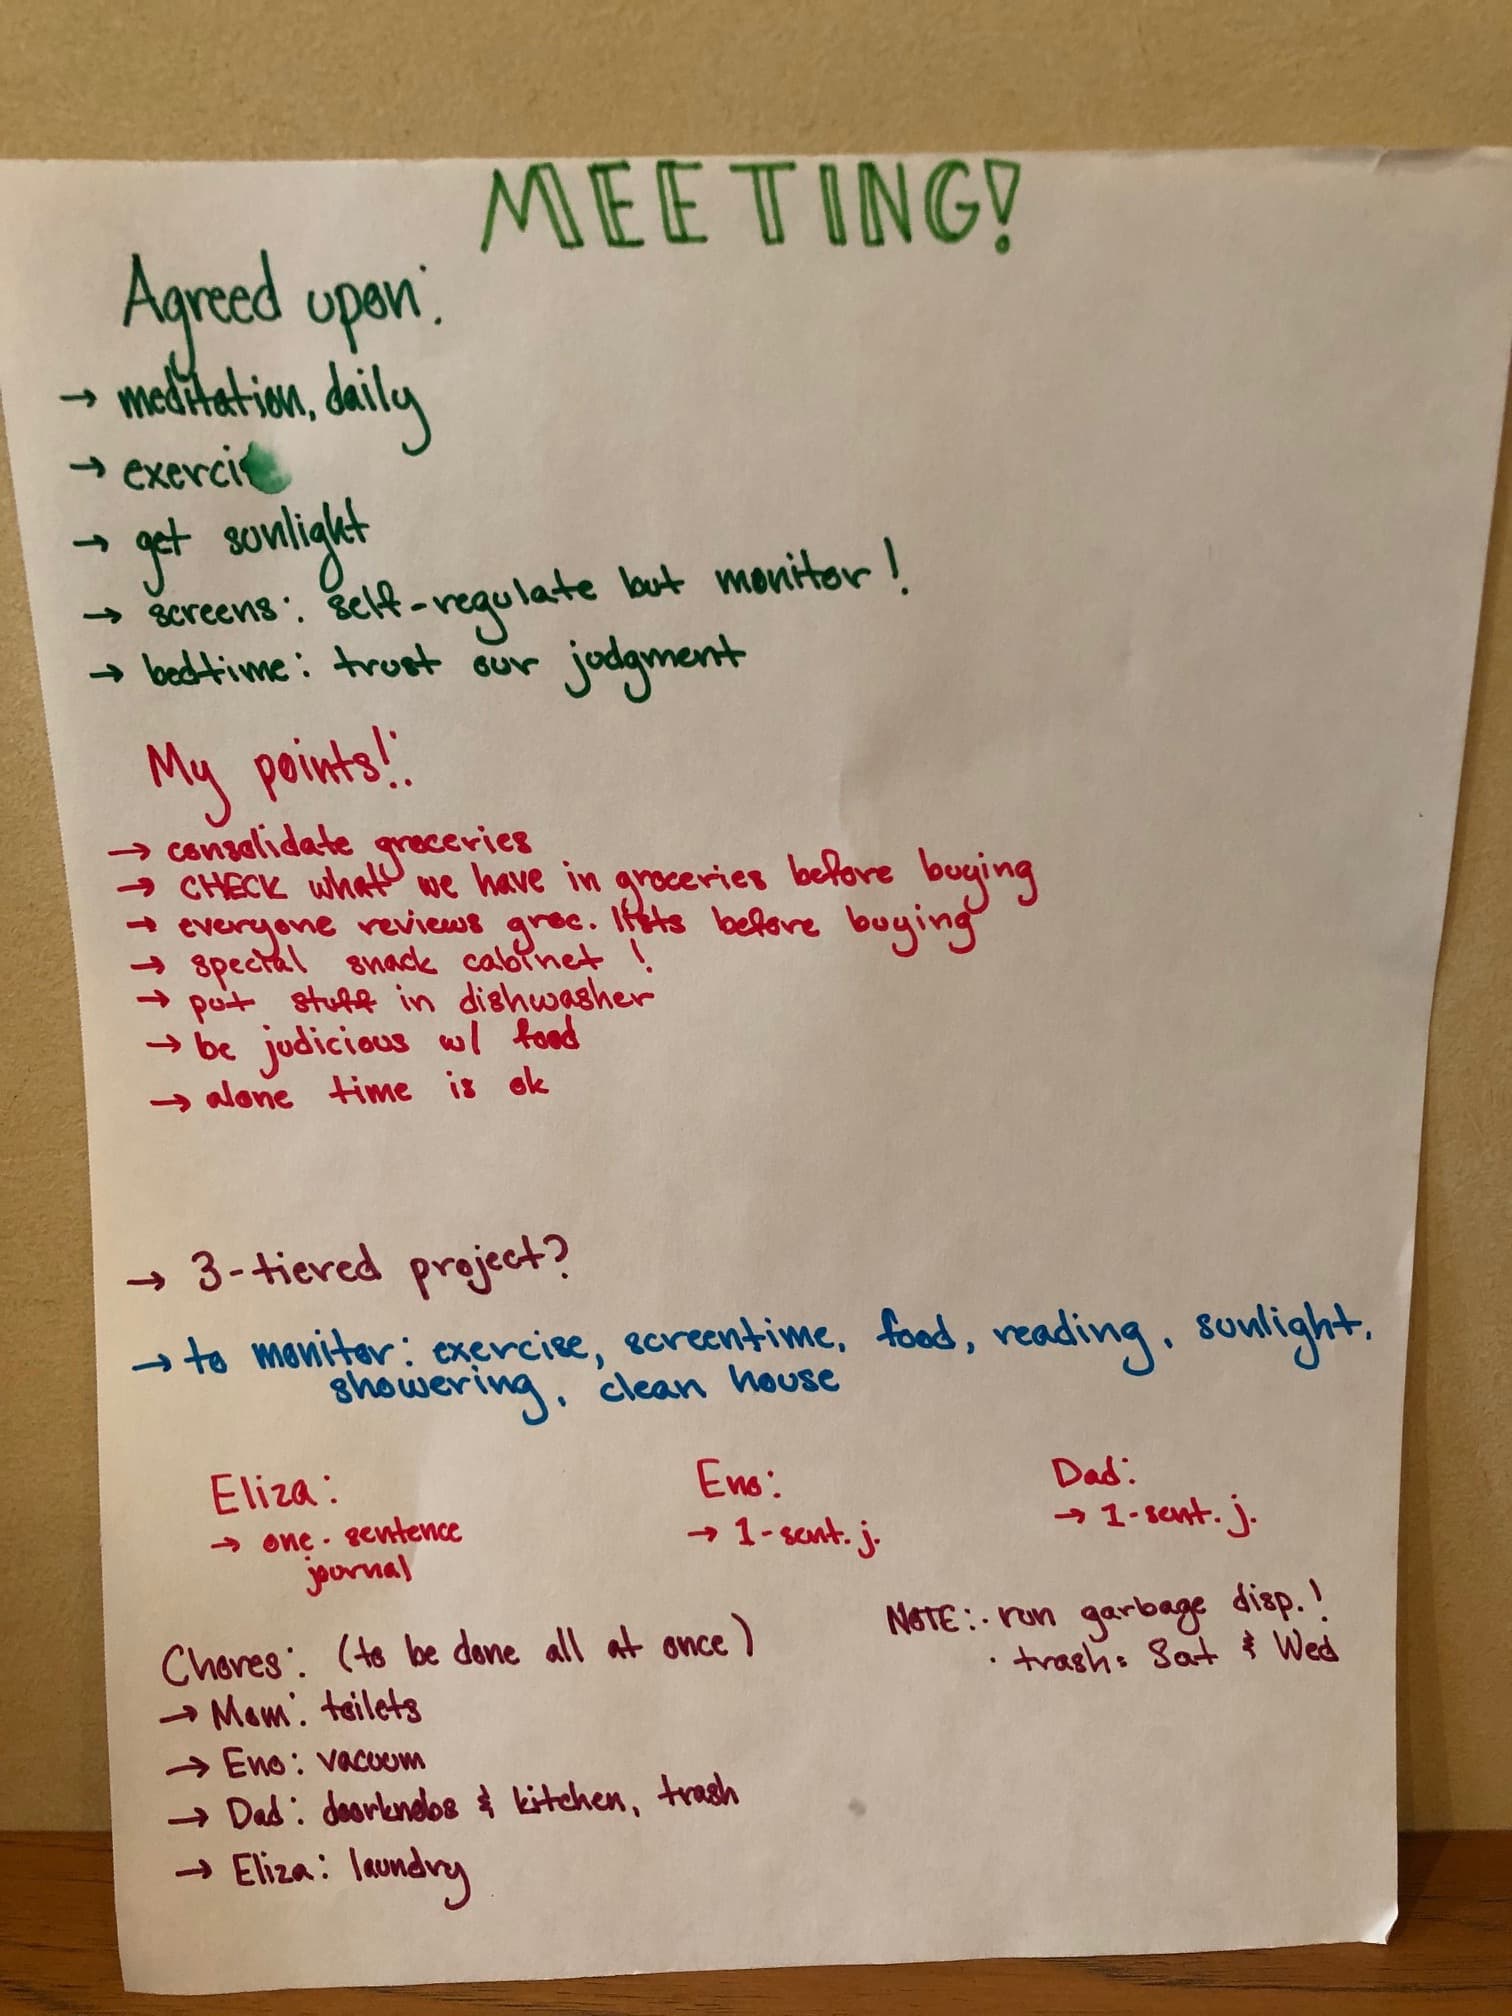 MEETING!
Agreed upon:
→ meditation, daily
→ exerci
→ get sunlight
→ screens: self-regulate but monitor!
→ bedtime: trust our judgment
My points!:
→ consolidate groceries
→ CHECK what we have in groceries before buying
→ everyone reviews groc. lists before buying
→ special snack cabinet!
→ put stuff in dishwasher
→ be judicious w/ food
→ alone time is ok
→ 3-tiered project?
→ to monitor: exercise, screentime, food, reading, sunlight,
showering, clean house
Eliza:
→ one-sentence
journal
Eno:
→ 1-sent. j.
Dad:
→ 1-sent. j.
NOTE: · run garbage disp.!
· trash: Sat & Wed
Chores: (to be done all at once)
→ Mom: toilets
→ Eno: vacuum
→ Dad: doorknobs & kitchen, trash
→ Eliza: laundry